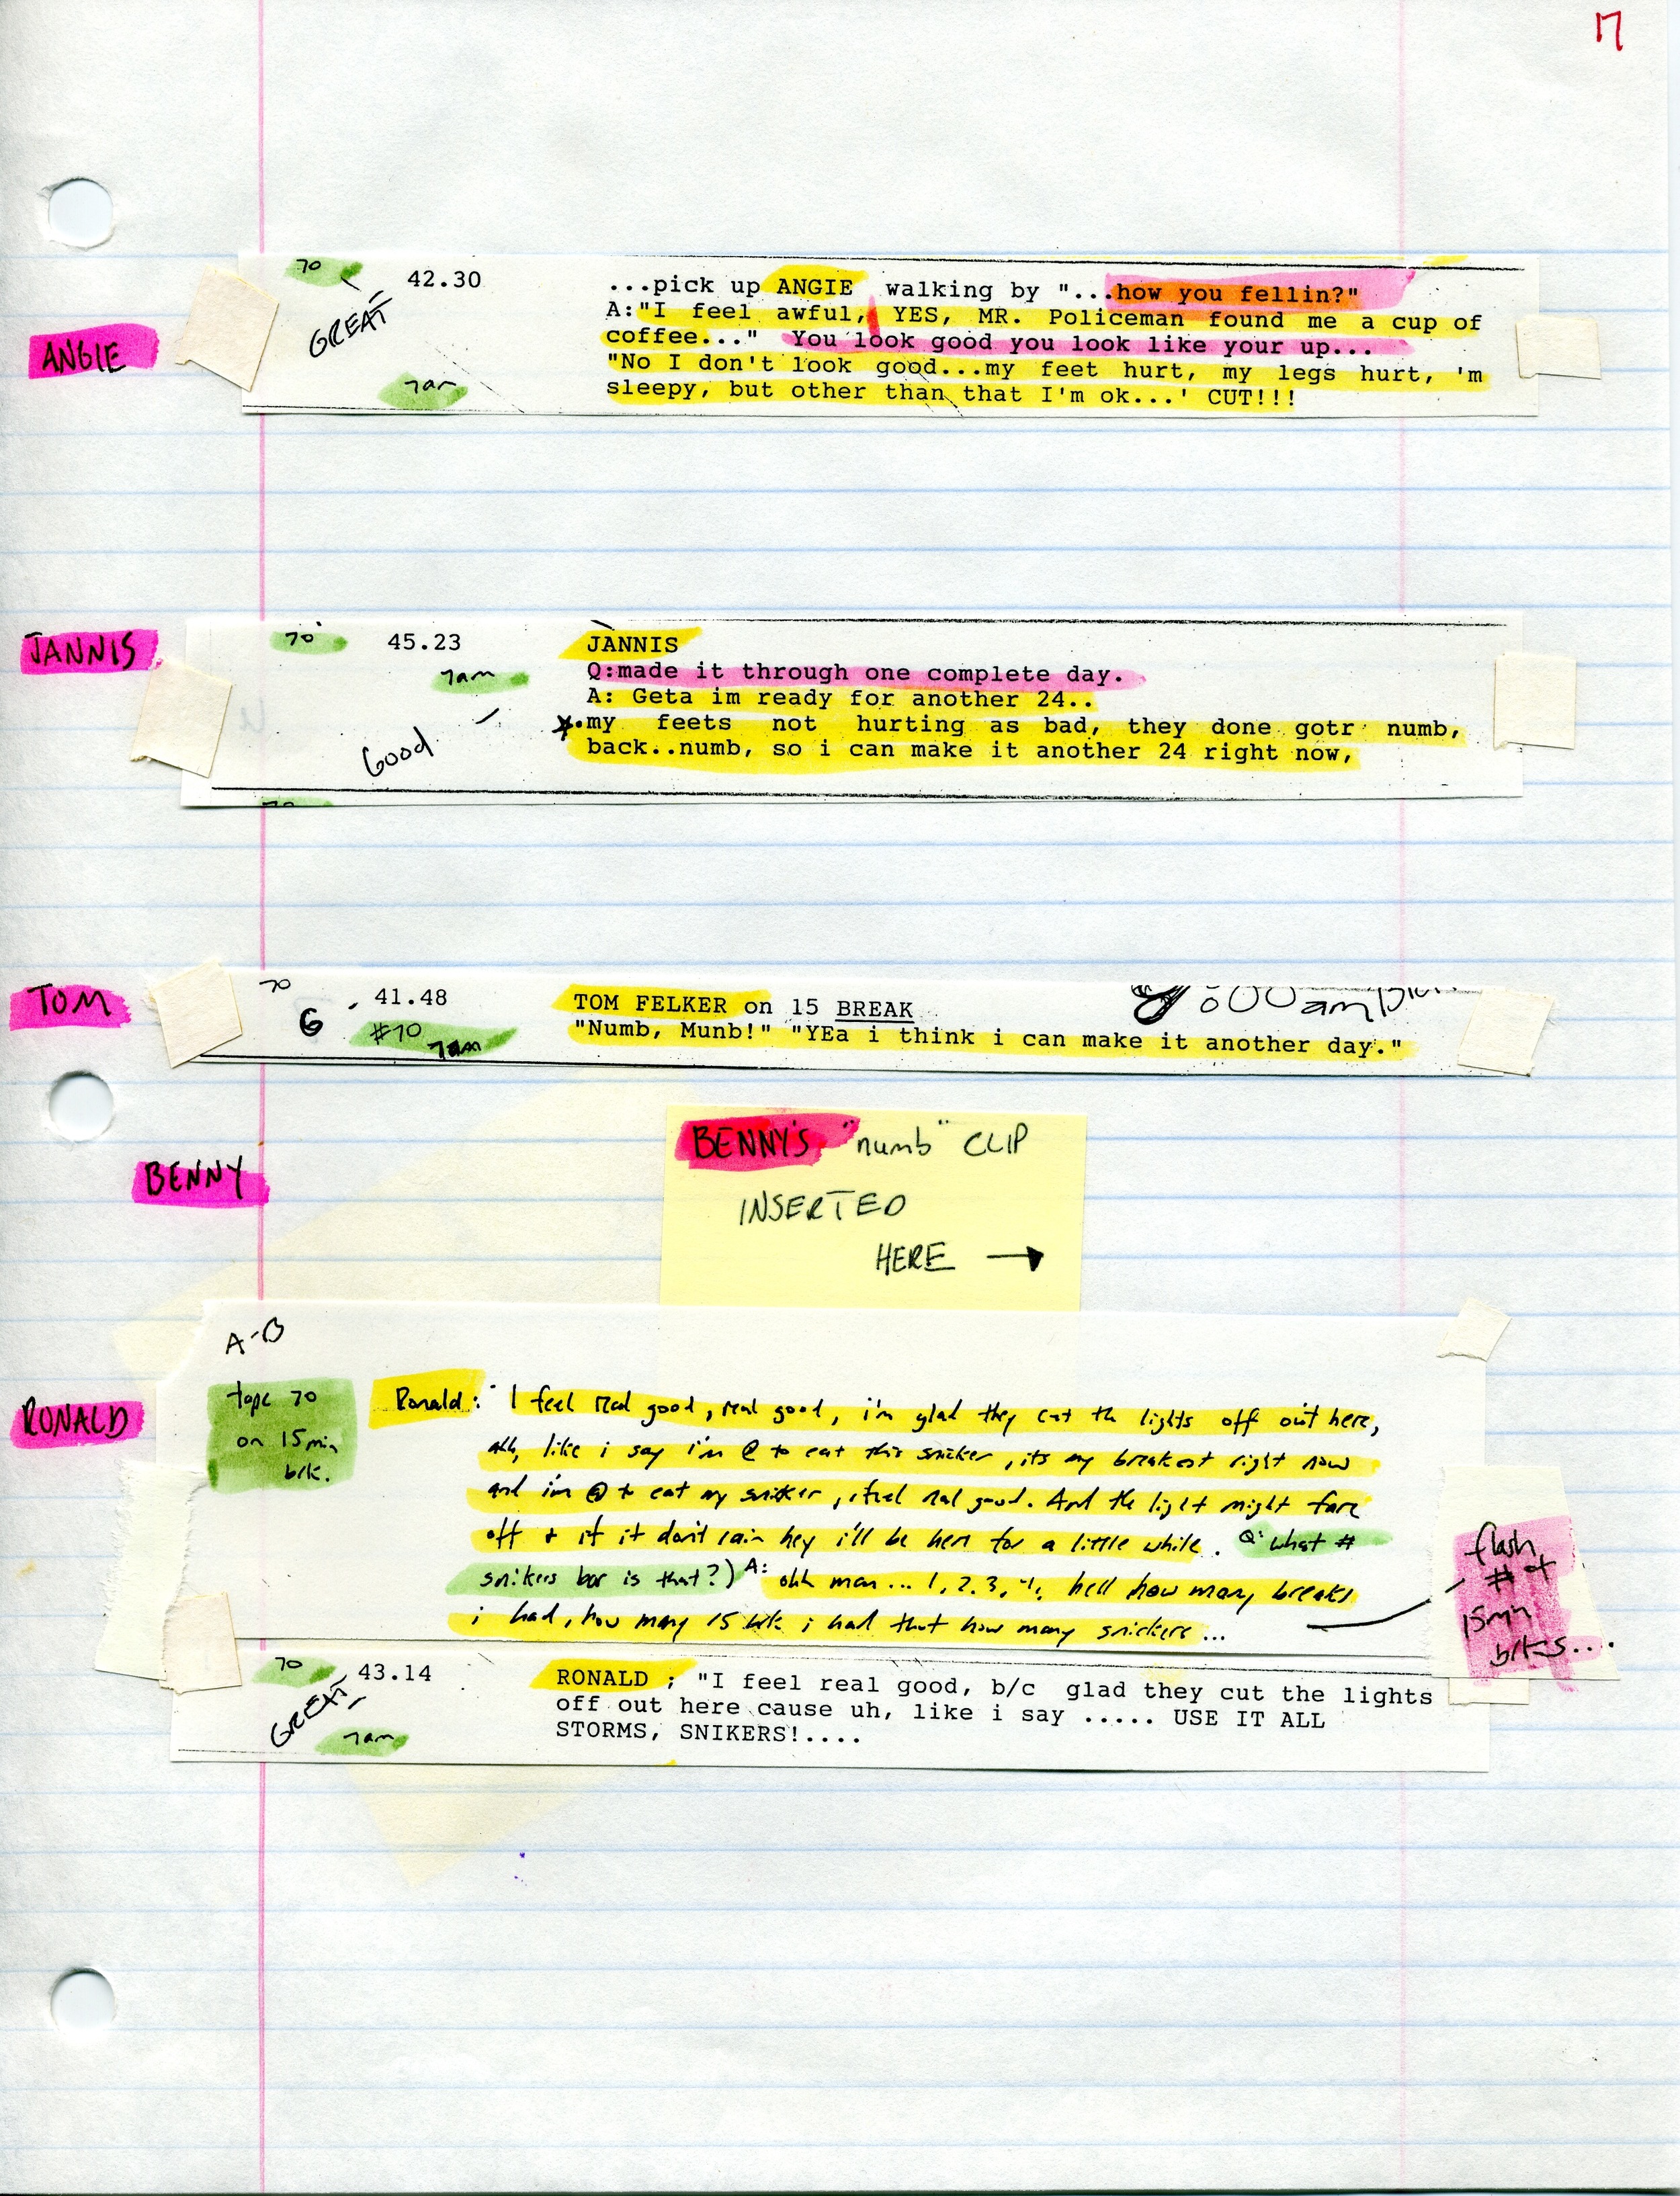 17
70 42.30 ...pick up ANGIE walking by "...how you fellin?"
GREAT A:"I feel awful, YES, MR. Policeman found me a cup of
ANGIE coffee..." You look good you look like your up...
"No I don't look good...my feet hurt, my legs hurt, 'm
7am sleepy, but other than that I'm ok...' CUT!!!
JANNIS 70 45.23 JANNIS
7am Q:made it through one complete day.
A: Geta im ready for another 24..
my feets not hurting as bad, they done gotr numb,
Good back..numb, so i can make it another 24 right now,
TOM 70 41.48 TOM FELKER on 15 BREAK 8:00am
G #70 7am "Numb, Munb!" "YEa i think i can make it another day."
BENNY'S "numb" CLIP
BENNY
INSERTED
HERE →
A-B
RONALD
tape 70
on 15 min
brk.
Ronald: " I feel real good, real good, i'm glad they cut th lights off out here,
ahh, like i say i'm @ to eat this snicker, its my breakest right now
and i'm @ to eat my snicker, i feel real good. And the light might fare
off + if it don't rain hey i'll be here for a little while. Q: what #
snikers bar is that?) A: ohh man... 1, 2, 3, 4, hell how many breaks
i had, how many 15 brk i had that how many snickers...
flash
# of
15min
brks....
70 43.14 RONALD ; "I feel real good, b/c glad they cut the lights
GREAT off out here cause uh, like i say ..... USE IT ALL
7am STORMS, SNIKERS!....